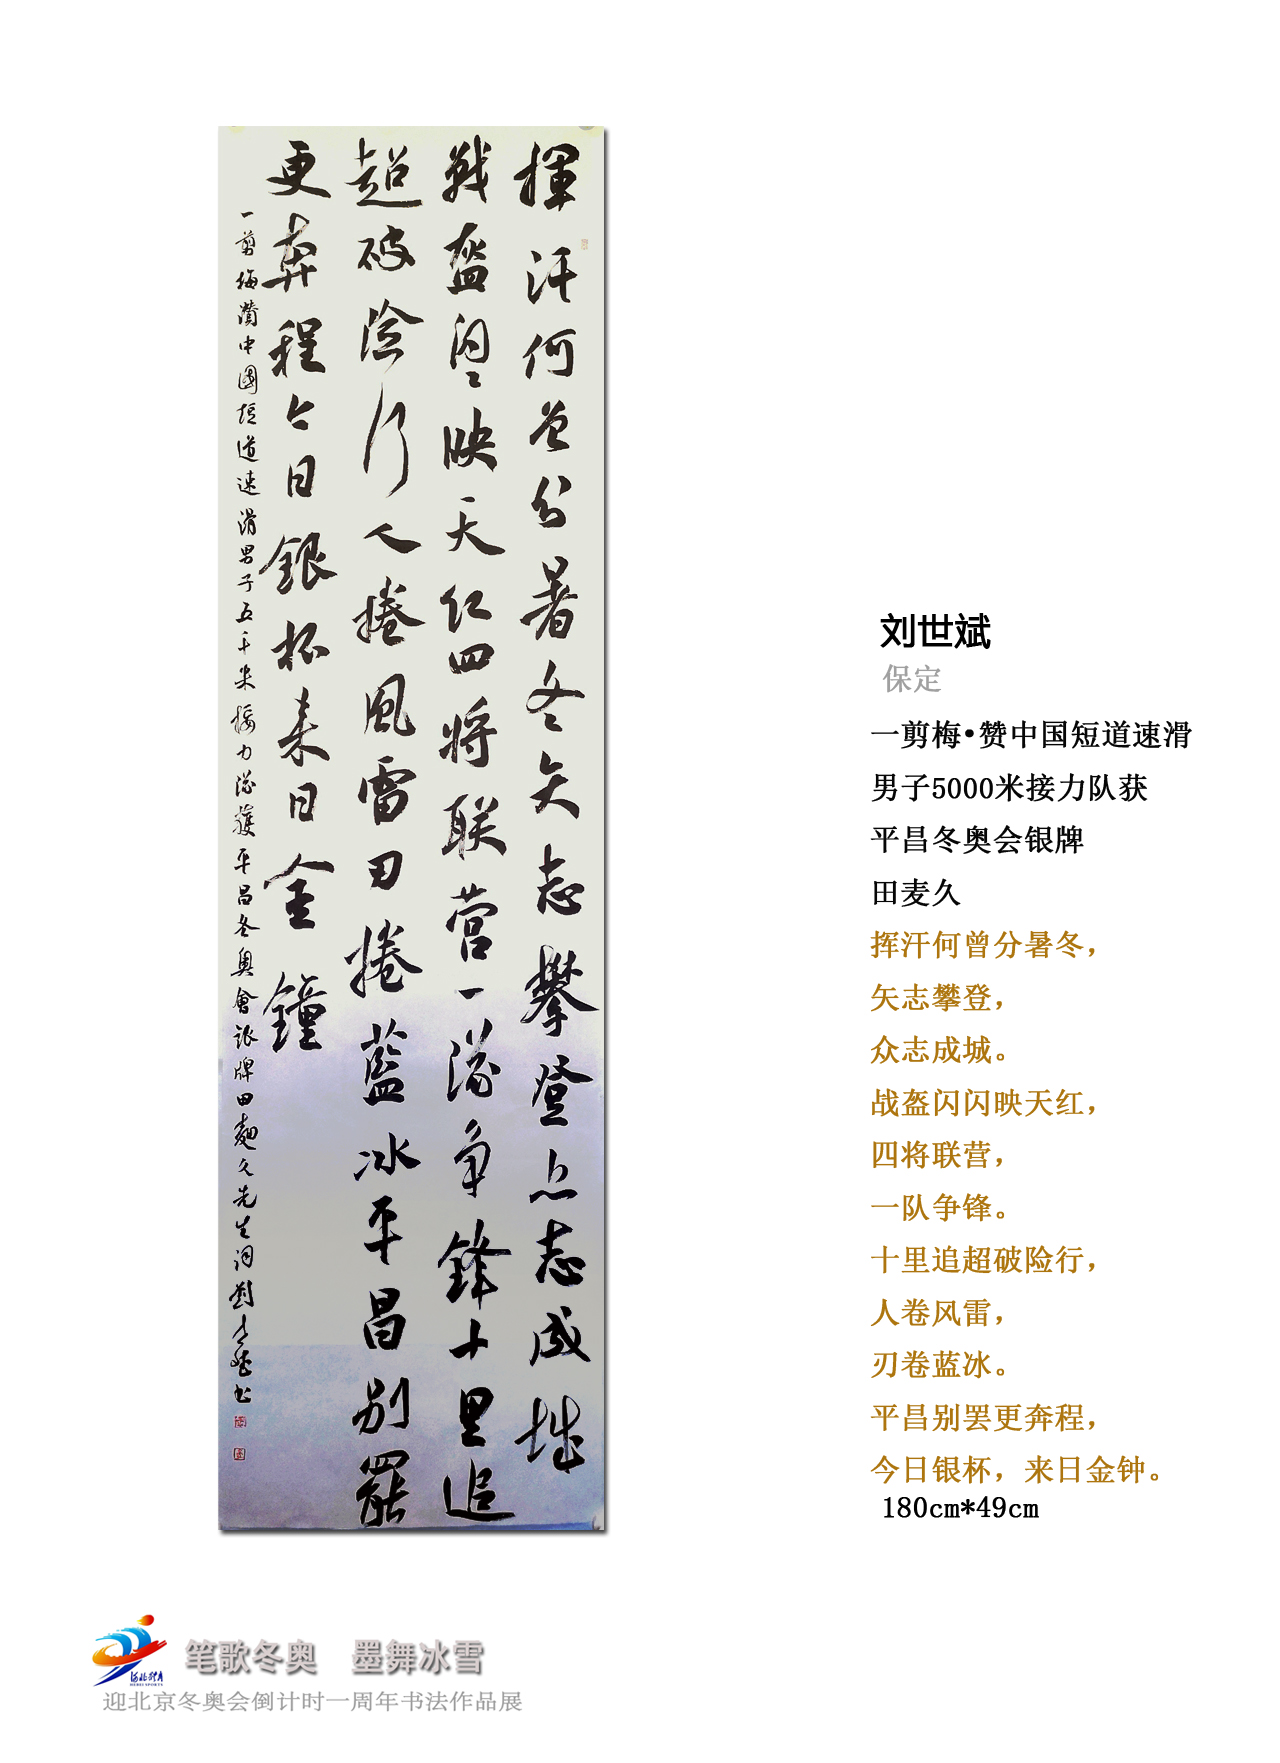 揮汗何曾分暑冬矢志攀登众志成城
戰盔闪〻映天红四将联营一队争鋒十里追
超破险行人捲風雷刃捲藍冰平昌别罷
更奔程今日銀杯来日金鐘
一剪梅赞中國短道速滑男子五千米接力队獲平昌冬奥會银牌田麺久先生词劉世斌书
刘世斌
保定
一剪梅•赞中国短道速滑
男子5000米接力队获
平昌冬奥会银牌
田麦久
挥汗何曾分暑冬，
矢志攀登，
众志成城。
战盔闪闪映天红，
四将联营，
一队争锋。
十里追超破险行，
人卷风雷，
刃卷蓝冰。
平昌别罢更奔程，
今日银杯，来日金钟。
180cm*49cm
河北体育
HEBEI SPORTS
笔歌冬奥　墨舞冰雪
迎北京冬奥会倒计时一周年书法作品展